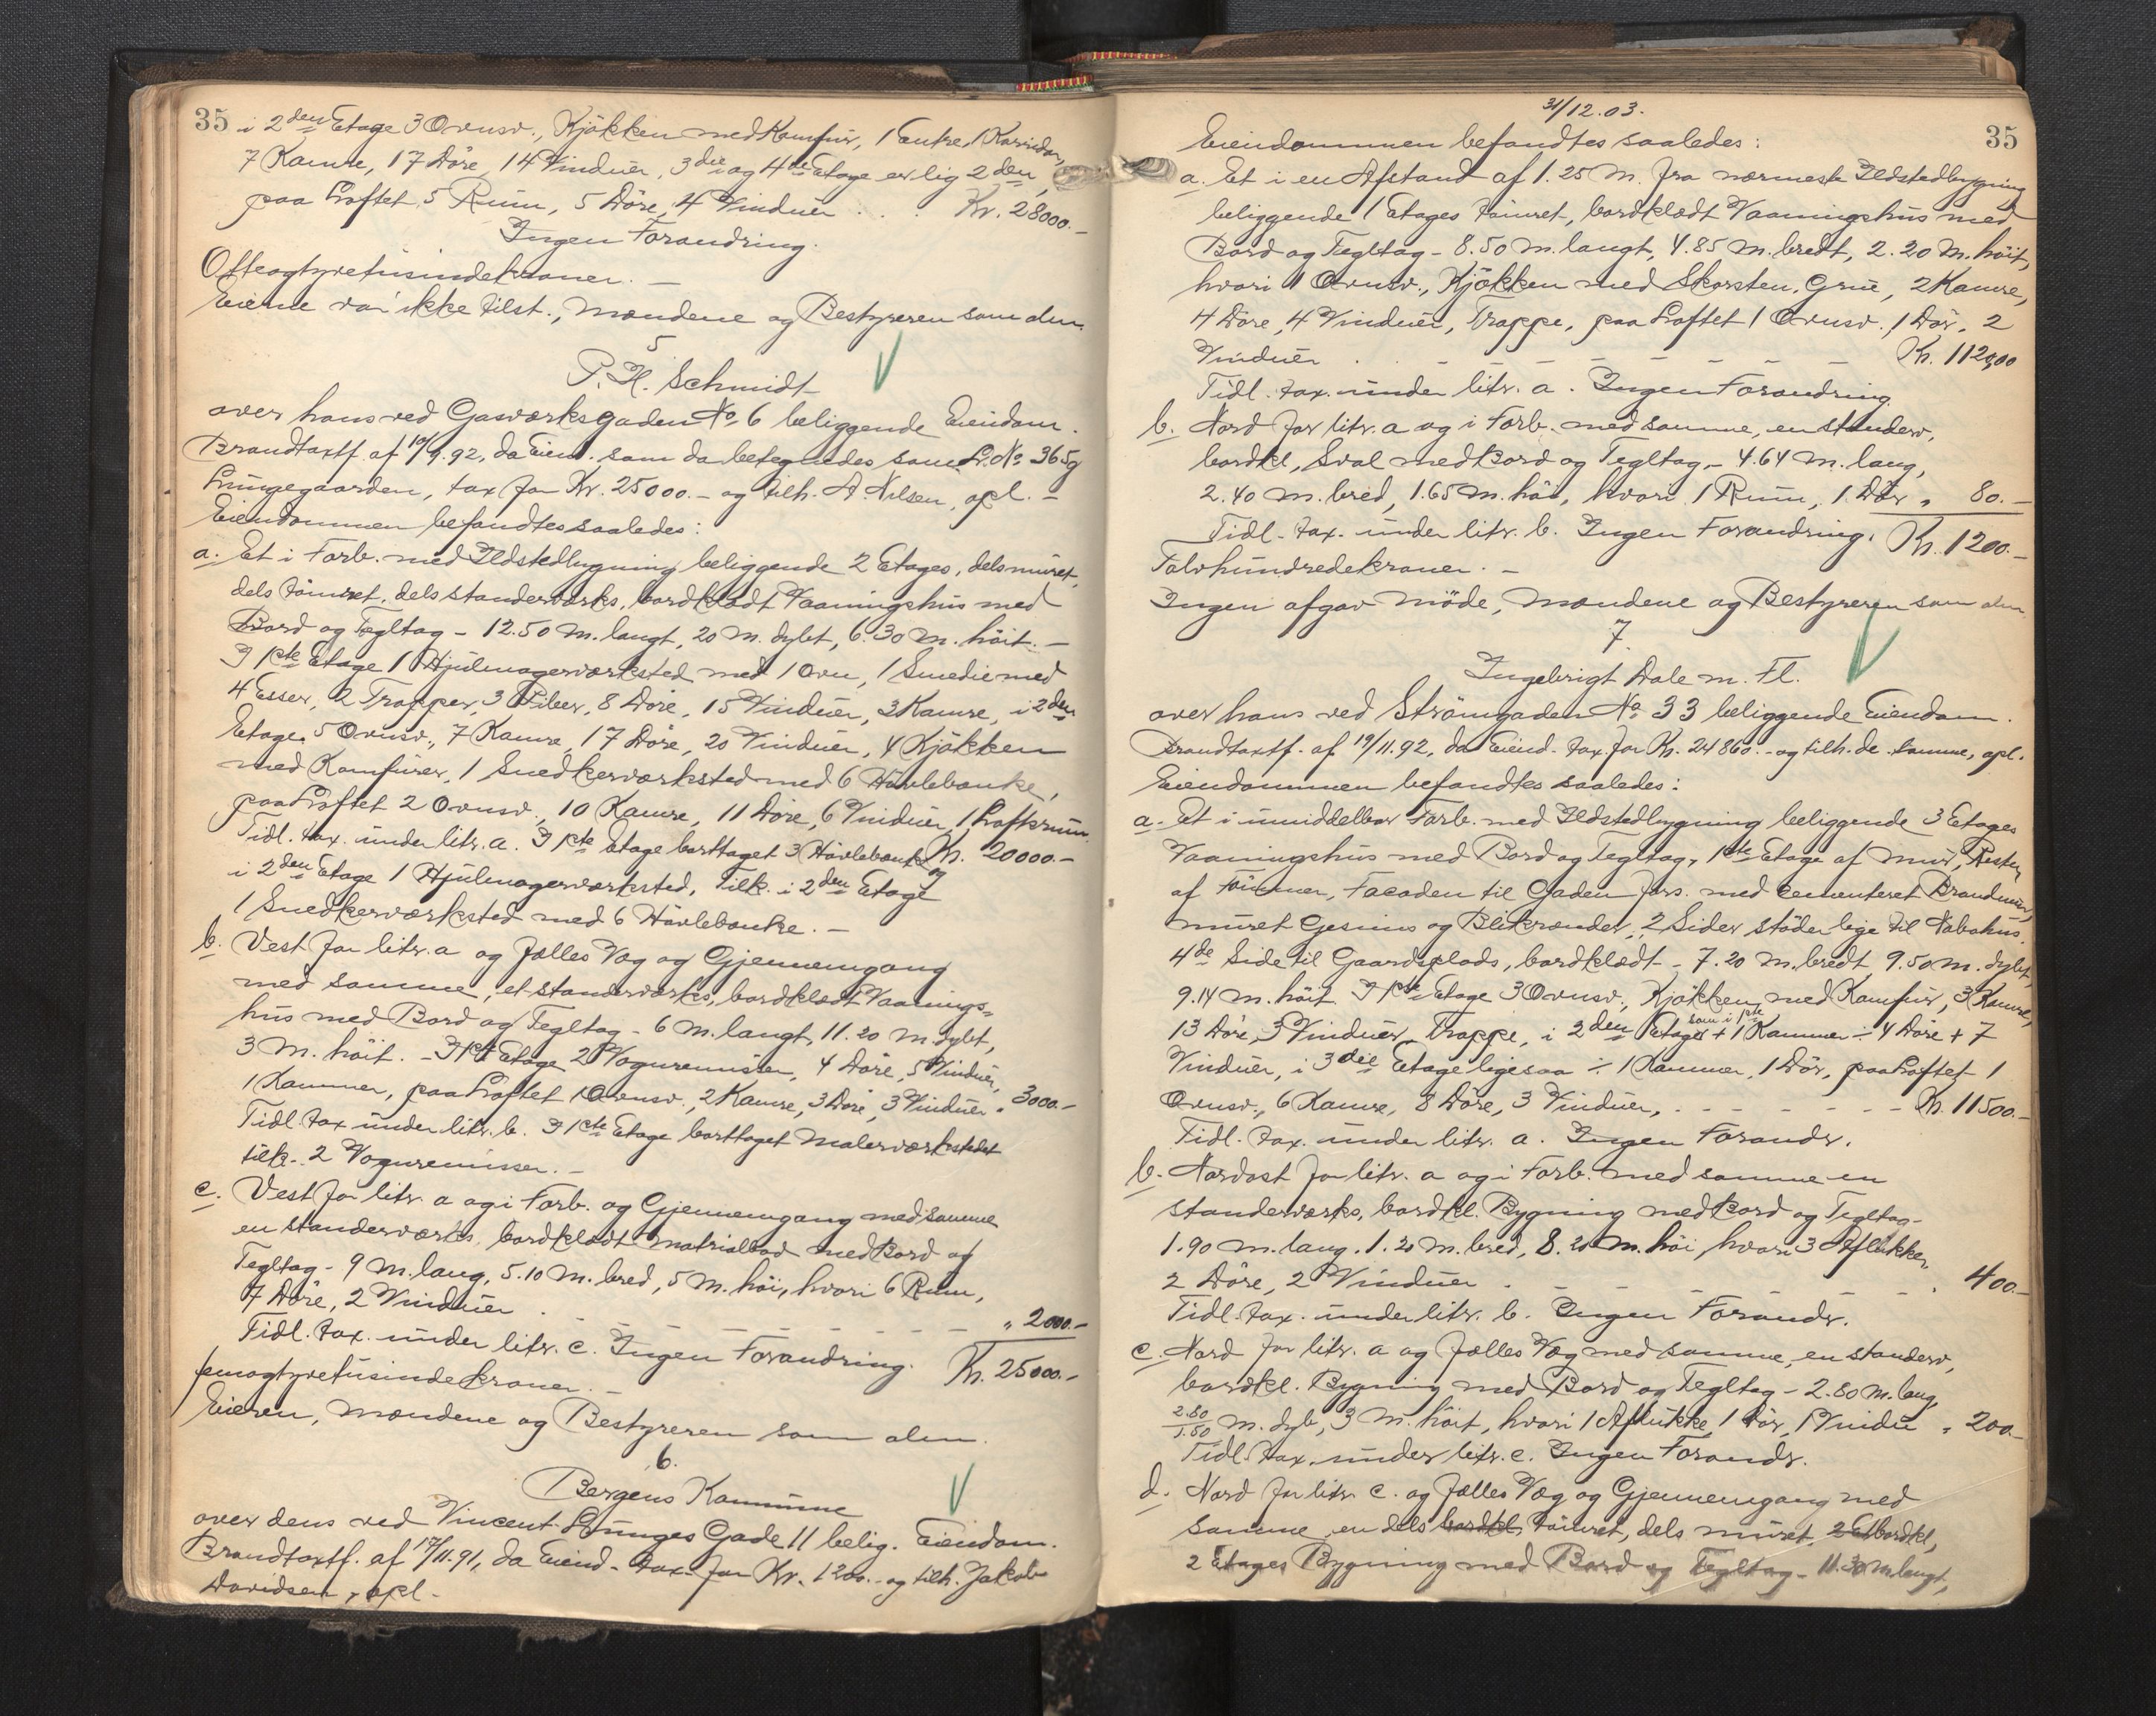 35
i 2den Etage 3 Ovnsv., Kjøkken med Komfur, 1 Entre, 1 Korridor,
7 Kamre, 17 Döre, 14 Vinduer, 3die og 4de Etage er lig 2den,
paa Loftet 5 Rum, 5 Döre, 4 Vinduer . . . Kr. 28000.-
Ingen Forandring.
Otteogtyvetusindekroner. —
Eierne var ikke tilst., Mændene og Bestyreren som alm.
5
P. H. Schmidt
over hans ved Gasværksgaden No 6 beliggende Eiendom.
Brandtaxtf. af 10/9.92, da Eiend. som da betegnedes som Lr. No 365g
Lungegaarden, tax for Kr. 25000.- og tilh. A. Nilsen, opl. -
Eiendommen befandtes saaledes:
a. Et i Forb. med Ildstedbygning beliggende 2 Etages, dels muret,
dels tömret, dels standerværks, bordklædt Vaaningshus med
Bord og Tegltag - 12.50 M. langt, 20 M. dybt, 6.30 M. höit. —
I 1ste Etage 1 Hjulmagerværksted med 1 Ovn, 1 Smedie med
4 Esser, 2 Trapper, 3 Piber, 8 Döre, 15 Vinduer, 3 Kamre, i 2den
Etage 5 Ovnsv., 7 Kamre, 17 Döre, 20 Vinduer, 4 Kjökken
med Komfurer, 1 Snedkerværksted med 6 Hövlebænke,
paa Loftet 2 Ovnsv., 10 Kamre, 11 Döre, 6 Vinduer, 1 Loftsrum Kr. 20000.-
Tidl. tax. under litr. a. I 1ste Etage borttaget 3 Hövlebænke og
i 2den Etage 1 Hjulmagerværksted, Tilk. i 2den Etage
1 Snedkerværksted med 6 Hövlebænke. —
b. Vest for litr. a og fælles Væg og Gjennemgang
med samme, et standerværks, bordklædt Vaanings-
hus med Bord og Tegltag - 6 M. langt, 11.20 M. dybt,
3 M. höit. - I 1ste Etage 2 Vognremiser, 4 Döre, 5 Vinduer,
1 Kammer, paa Loftet 1 Ovnsv., 2 Kamre, 3 Döre, 3 Vinduer „ 3000.-
Tidl. tax under litr. b. I 1ste Etage borttaget Malerværkstedet
tilk. 2 Vognremisser. -
c. Vest for litr. a og i Forb. og Gjennemgang med samme
en standerværks, bordklædt Matrialbod med Bord og
Tegltag - 9 M. lang, 5.10 M. bred, 5 M. höi, hvori 6 Rum,
7 Döre, 2 Vinduer . — — — — — — „ 2000.-
Tidl. tax. under litr. c. Ingen Forandring. Kr. 25000.-
femogtyvetusindekroner. —
Eieren, Mændene og Bestyreren som alm.
6.
Bergens Kommune
over dens ved Vincent Lunges Gade 11 belig. Eiendom.
Brandtaxtf. af 17/11.91, da Eiend. tax for Kr. 1200.- og tilh. Jakob
Davidsen, opl.-
31/12.03.
35
Eiendommen befandtes saaledes:
a. Et i en Afstand af 1.25 M. fra nærmeste Ildstedbygning
beliggende 1 Etages tömret, bordklædt Vaaningshus med
Bord og Tegltag - 8.50 M. langt, 4.85 M. bredt, 2.20 M. höit,
hvori 1 Ovnsv., Kjökken med Skorsten, Grue, 2 Kamre,
4 Döre, 4 Vinduer, Trappe, paa Loftet 1 Ovnsv. 1 Dör, 2
Vinduer . . - - - - - - - Kr. 1120,00
Tidl. tax. under litr. a. Ingen Forandring.
b. Nord for litr. a og i Forb. med samme, en standerv,
bordkl, Sval med Bord og Tegltag, - 4.64 M. lang,
2.40 M. bred, 1.65 M. höi, hvori 1 Rum, 1 Dör „ 80.-
Tidl. tax. under litr. b. Ingen Forandring. Kr. 1200.-
Tolvhundredekroner. -
Ingen afgav Möde, Mændene og Bestyreren som alm.
7.
Ingebrigt Dale m. Fl.
over hans ved Strömgaden No 33 beliggende Eiendom.
Brandtaxtf. af 19/11.92, da Eiend. tax. for Kr. 24860.- og tilh. de samme, opl.
Eiendommen befandtes saaledes:
a. Et i umiddelbar Forb. med Ildstedbygning beliggende 3 Etages
Vaaningshus med Bord og Tegltag, 1ste Etage af Mur, Resten
af Tömmer, Facaden til Gaden fors. med cementeret Brandmur,
muret Gesims og Blikrender, 2 Sider stöder lige til Nabohus.
4de Side til Gaardsplads, bordklædt - 7.20 M. bredt, 9.50 M. dybt,
9.14 M. höit. I 1ste Etage 3 Ovnsv., Kjökken med Komfur, 3 Kamre,
13 Döre, 3 Vinduer, Trappe, i 2den Etage som i 1ste + 1 Kammer ÷ 4 Döre + 7
Vinduer, i 3die Etage ligesaa ÷ 1 Kammer, 1 Dör, paa Loftet 1
Ovnsv., 6 Kamre, 8 Döre, 3 Vinduer, . - - - - - - Kr. 11500.-
Tidl. tax. under litr. a. Ingen Forandr.
b. Nordost for litr. a og i Forb. med samme en
standerværks, bordkl. Bygning med Bord og Tegltag -
1.90 M. lang. 1.20 M. bred, 8.20 M. höi, hvori 3 Aflukker,
2 Döre, 2 Vinduer . - - - - - - „ 400.-
Tidl. tax. under litr. b. Ingen Forandr.
c. Nord for litr. a og fælles Væg med samme, en standerv,
bordkl. Bygning med Bord og Tegltag - 2.80 M. lang,
2.80/1.50 M. dyb, 3 M. höit, hvori 1 Aflukke, 1 Dör, 1 Vindu „ 200.-
Tidl. tax. under litr. c. Ingen Forandr.
d. Nord for litr. c. og fælles Væg og Gjennemgang med
samme en dels bordkl. tömret, dels muret, 2 Et bordkl,
2 Etages Bygning med Bord og Tegltag - 11.30 M. langt,